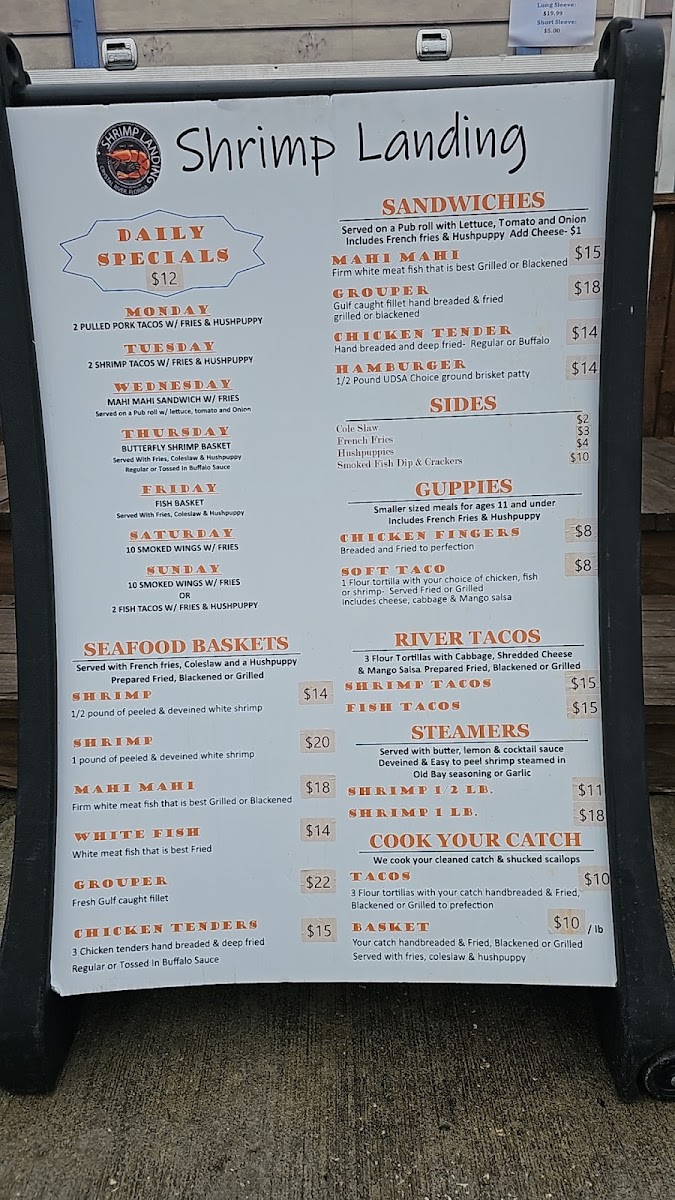 Long Sleeve:
$19.99
Short Sleeve:
$5.00
SHRIMP LANDING
CRYSTAL RIVER, FLORIDA
Shrimp Landing
DAILY
SPECIALS
$12
MONDAY
2 PULLED PORK TACOS W/ FRIES & HUSHPUPPY
TUESDAY
2 SHRIMP TACOS W/ FRIES & HUSHPUPPY
WEDNESDAY
MAHI MAHI SANDWICH W/ FRIES
Served on a Pub roll w/ lettuce, tomato and Onion
THURSDAY
BUTTERFLY SHRIMP BASKET
Served With Fries, Coleslaw & Hushpuppy
Regular or Tossed In Buffalo Sauce
FRIDAY
FISH BASKET
Served With Fries, Coleslaw & Hushpuppy
SATURDAY
10 SMOKED WINGS W/ FRIES
SUNDAY
10 SMOKED WINGS W/ FRIES
OR
2 FISH TACOS W/ FRIES & HUSHPUPPY
SEAFOOD BASKETS
Served with French fries, Coleslaw and a Hushpuppy
Prepared Fried, Blackened or Grilled
SHRIMP $14
1/2 pound of peeled & deveined white shrimp
SHRIMP $20
1 pound of peeled & deveined white shrimp
MAHI MAHI $18
Firm white meat fish that is best Grilled or Blackened
WHITE FISH $14
White meat fish that is best Fried
GROUPER $22
Fresh Gulf caught fillet
CHICKEN TENDERS $15
3 Chicken tenders hand breaded & deep fried
Regular or Tossed In Buffalo Sauce
SANDWICHES
Served on a Pub roll with Lettuce, Tomato and Onion
Includes French fries & Hushpuppy Add Cheese- $1
MAHI MAHI $15
Firm white meat fish that is best Grilled or Blackened
GROUPER $18
Gulf caught fillet hand breaded & fried
grilled or blackened
CHICKEN TENDER $14
Hand breaded and deep fried- Regular or Buffalo
HAMBURGER $14
1/2 Pound UDSA Choice ground brisket patty
SIDES
Cole Slaw $2
French Fries $3
Hushpuppies $4
Smoked Fish Dip & Crackers $10
GUPPIES
Smaller sized meals for ages 11 and under
Includes French Fries & Hushpuppy
CHICKEN FINGERS $8
Breaded and Fried to perfection
SOFT TACO $8
1 Flour tortilla with your choice of chicken, fish
or shrimp- Served Fried or Grilled
Includes cheese, cabbage & Mango salsa
RIVER TACOS
3 Flour Tortillas with Cabbage, Shredded Cheese
& Mango Salsa Prepared Fried, Blackened or Grilled
SHRIMP TACOS $15
FISH TACOS $15
STEAMERS
Served with butter, lemon & cocktail sauce
Deveined & Easy to peel shrimp steamed in
Old Bay seasoning or Garlic
SHRIMP 1/2 LB. $11
SHRIMP 1 LB. $18
COOK YOUR CATCH
We cook your cleaned catch & shucked scallops
TACOS $10
3 Flour tortillas with your catch handbreaded & Fried,
Blackened or Grilled to prefection
BASKET $10 / lb
Your catch handbreaded & Fried, Blackened or Grilled
Served with fries, coleslaw & hushpuppy